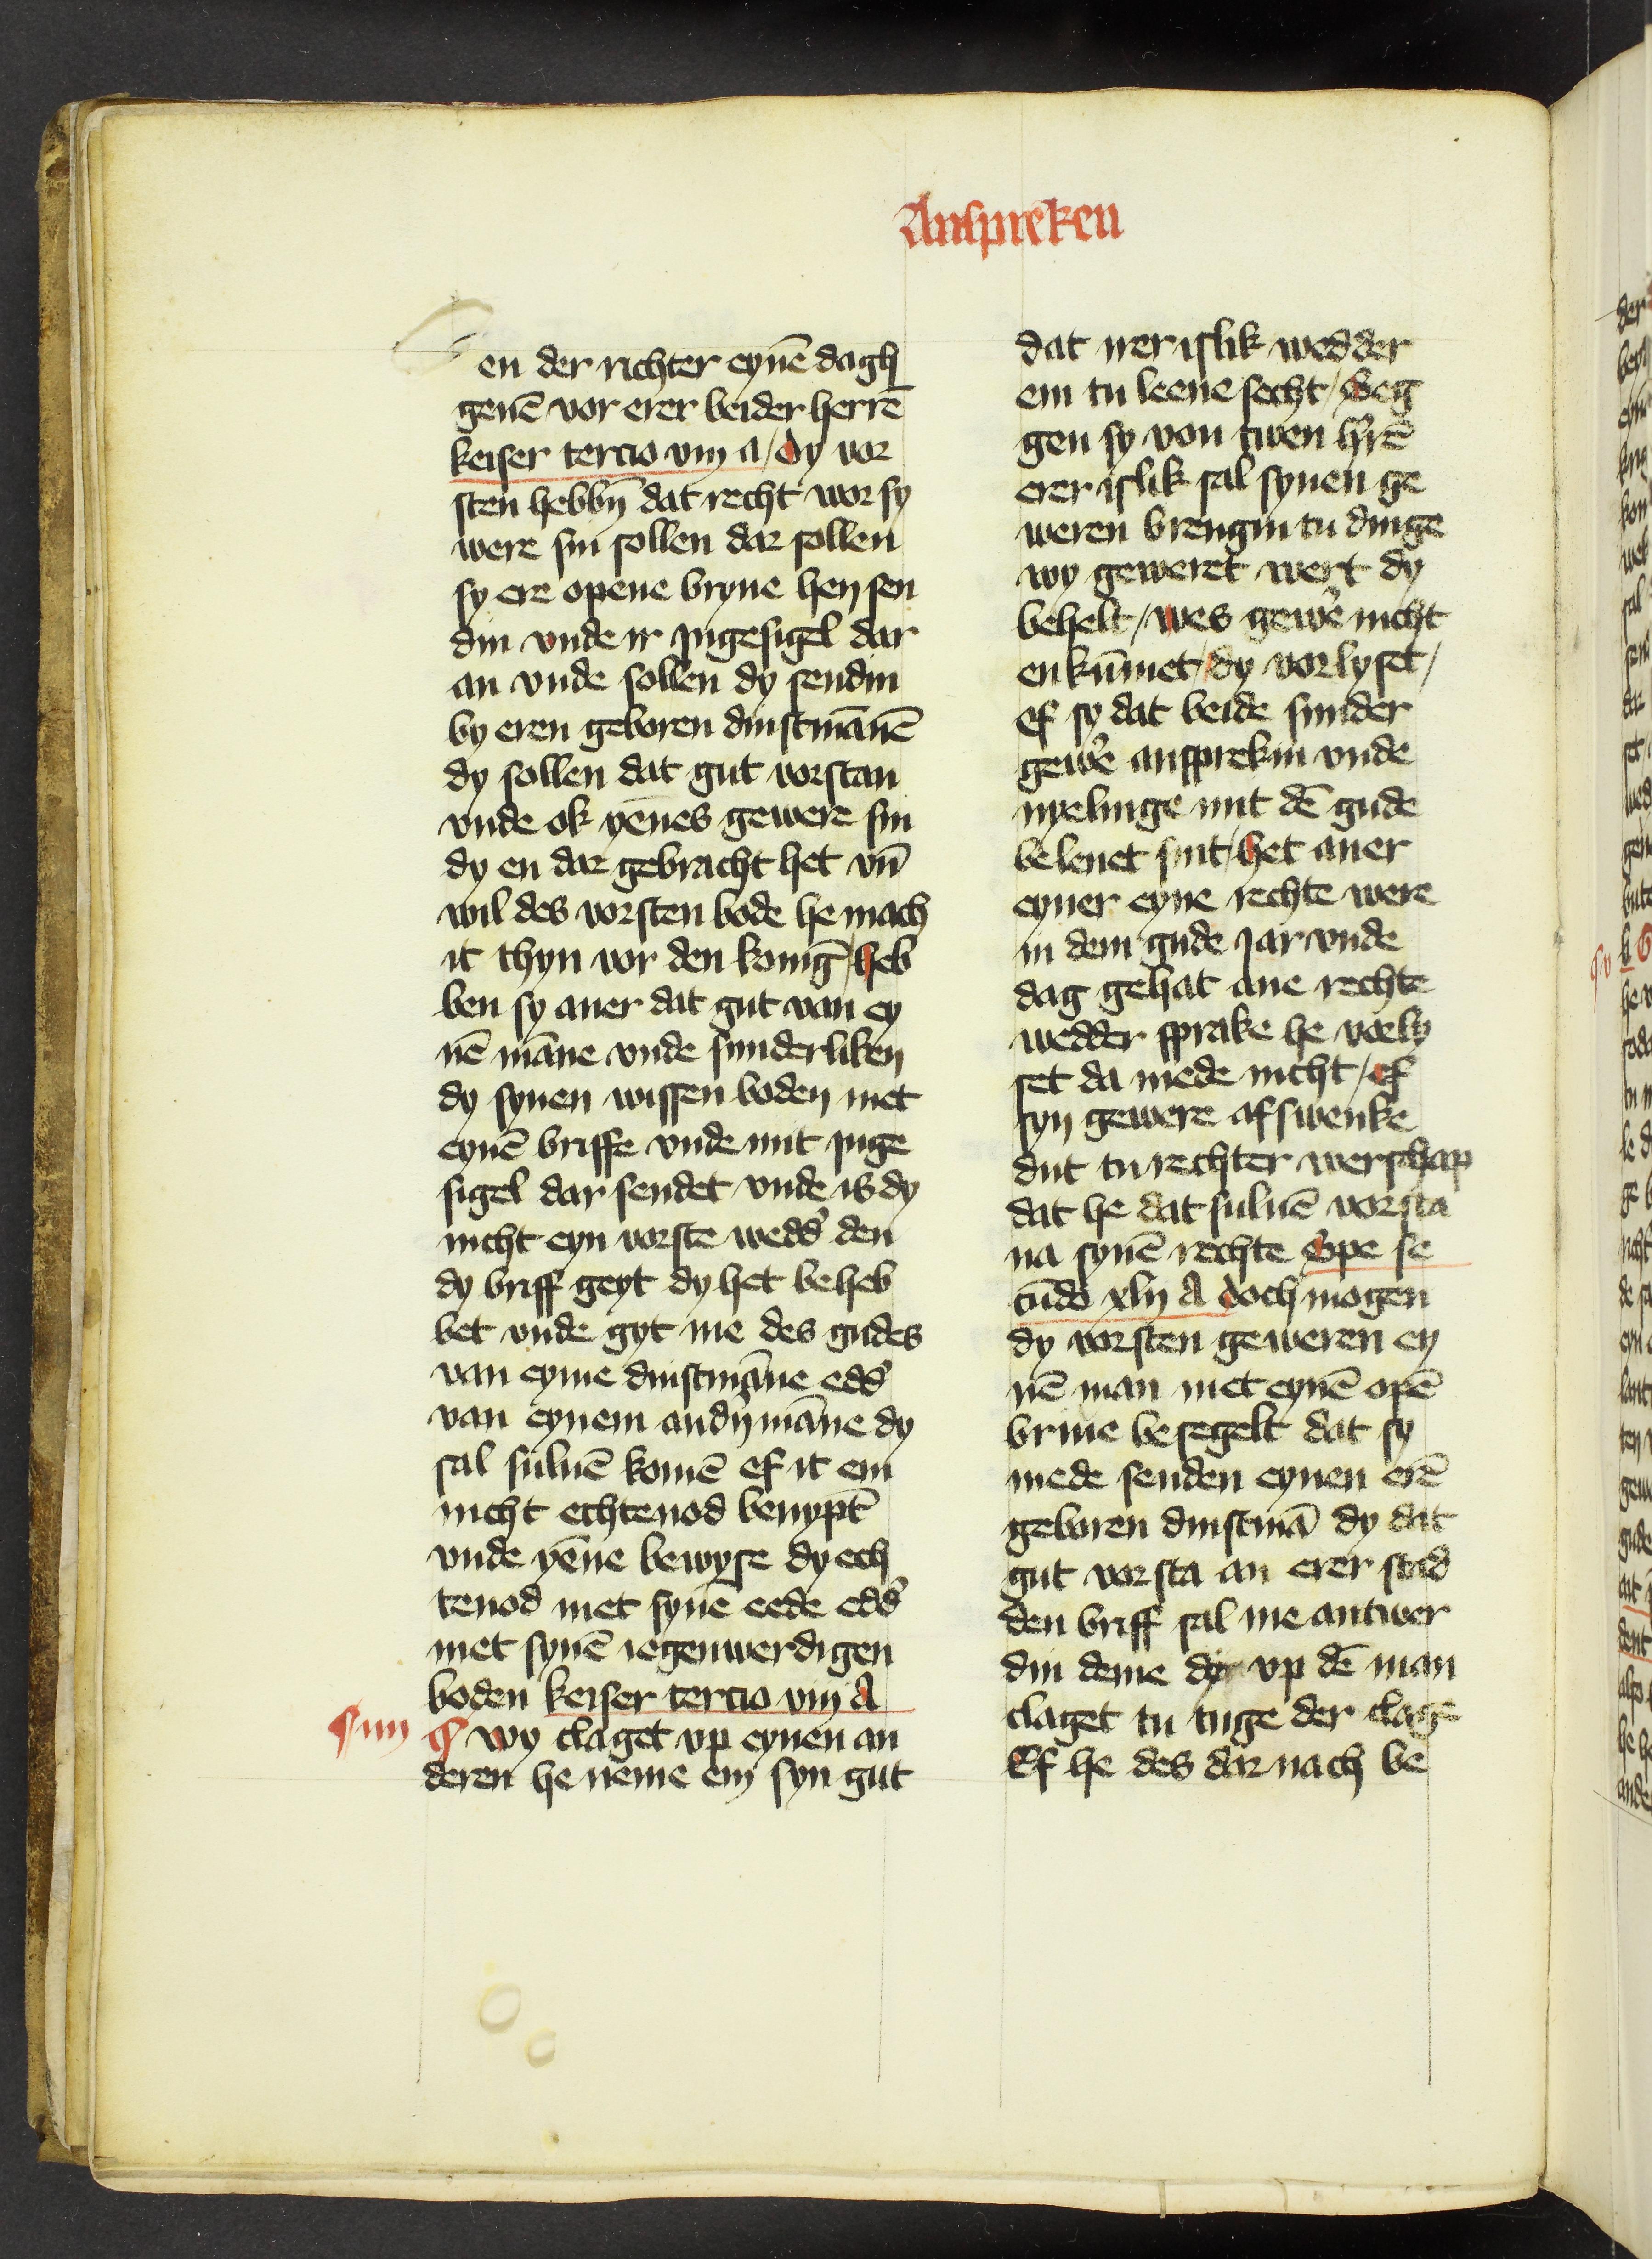 Anspreken
en der richter eynē dagh
geuē vor erer beider herrē
keiser tercio viij a / dy vor
sten hebbn̄ dat recht wor sy
were sin sollen dar sollen
sy ere opene bryue hen sen
din vnde ir jngesigel dar
an vnde sollen dy sendin
by eren geboren dinstmānē
dy sollen dat gut vorstan
vnde ok yenes gewere sin
dy en dar gebracht het vn̄
wil des vorsten bode he mach
it thyn vor den konīg / heb
ben sy auer dat gut van ey
nē māne vnde sunderliken
dy synen wissen boden met
eynē briffe vnde mit inge
sigel dar sendet vnde is dy
nicht eyn vorste wedd' den
dy briff geyt dy het beheb
bet vnde gyt me des gudes
van eyme dinstmāne edd'
van eynem andn̄ māne dy
sal suluē komē ef it em
nicht echtenod benypt
vnde yēne bewyse dy ech
tenod met synē eede edd'
met synē iegenwerdigen
boden keiser tercio viij A
¶ iiij ¶ wy claget vp eynen an
deren he neme em syn gut
dat irer islik wedder
em tu leene secht / Seg
gen sy von twen h'rē
erer islik sal synen ge
weren brengin tu dinge
wy geweret wert dy
behelt / wes gew'e nicht
en kūmet / dy vorlyset /
ef sy dat beide sunder
gew'e ansprekin vnde
nyelinge mit dē gude
belenet sint / het auer
eyner eyne rechte were
in dem gude jar vnde
dag gehat ane rechte
wedder sprake he vorly
set da mede nicht / ef
syn gewere afswenke
dut tu rechter werschap
dat he dat suluē vorsta
na synē rechte Spe se
cūdo xlij A doch mogen
dy vorsten geweren ey
nē man met eynē opē
briue besegelt dat sy
mede senden eynen erē
geboren dinstmā dy dat
gut vorsta an erer stad
den briff sal me antwer
din deme dy vp dē man
claget tu tuge der clage
Ef he des dar nach be